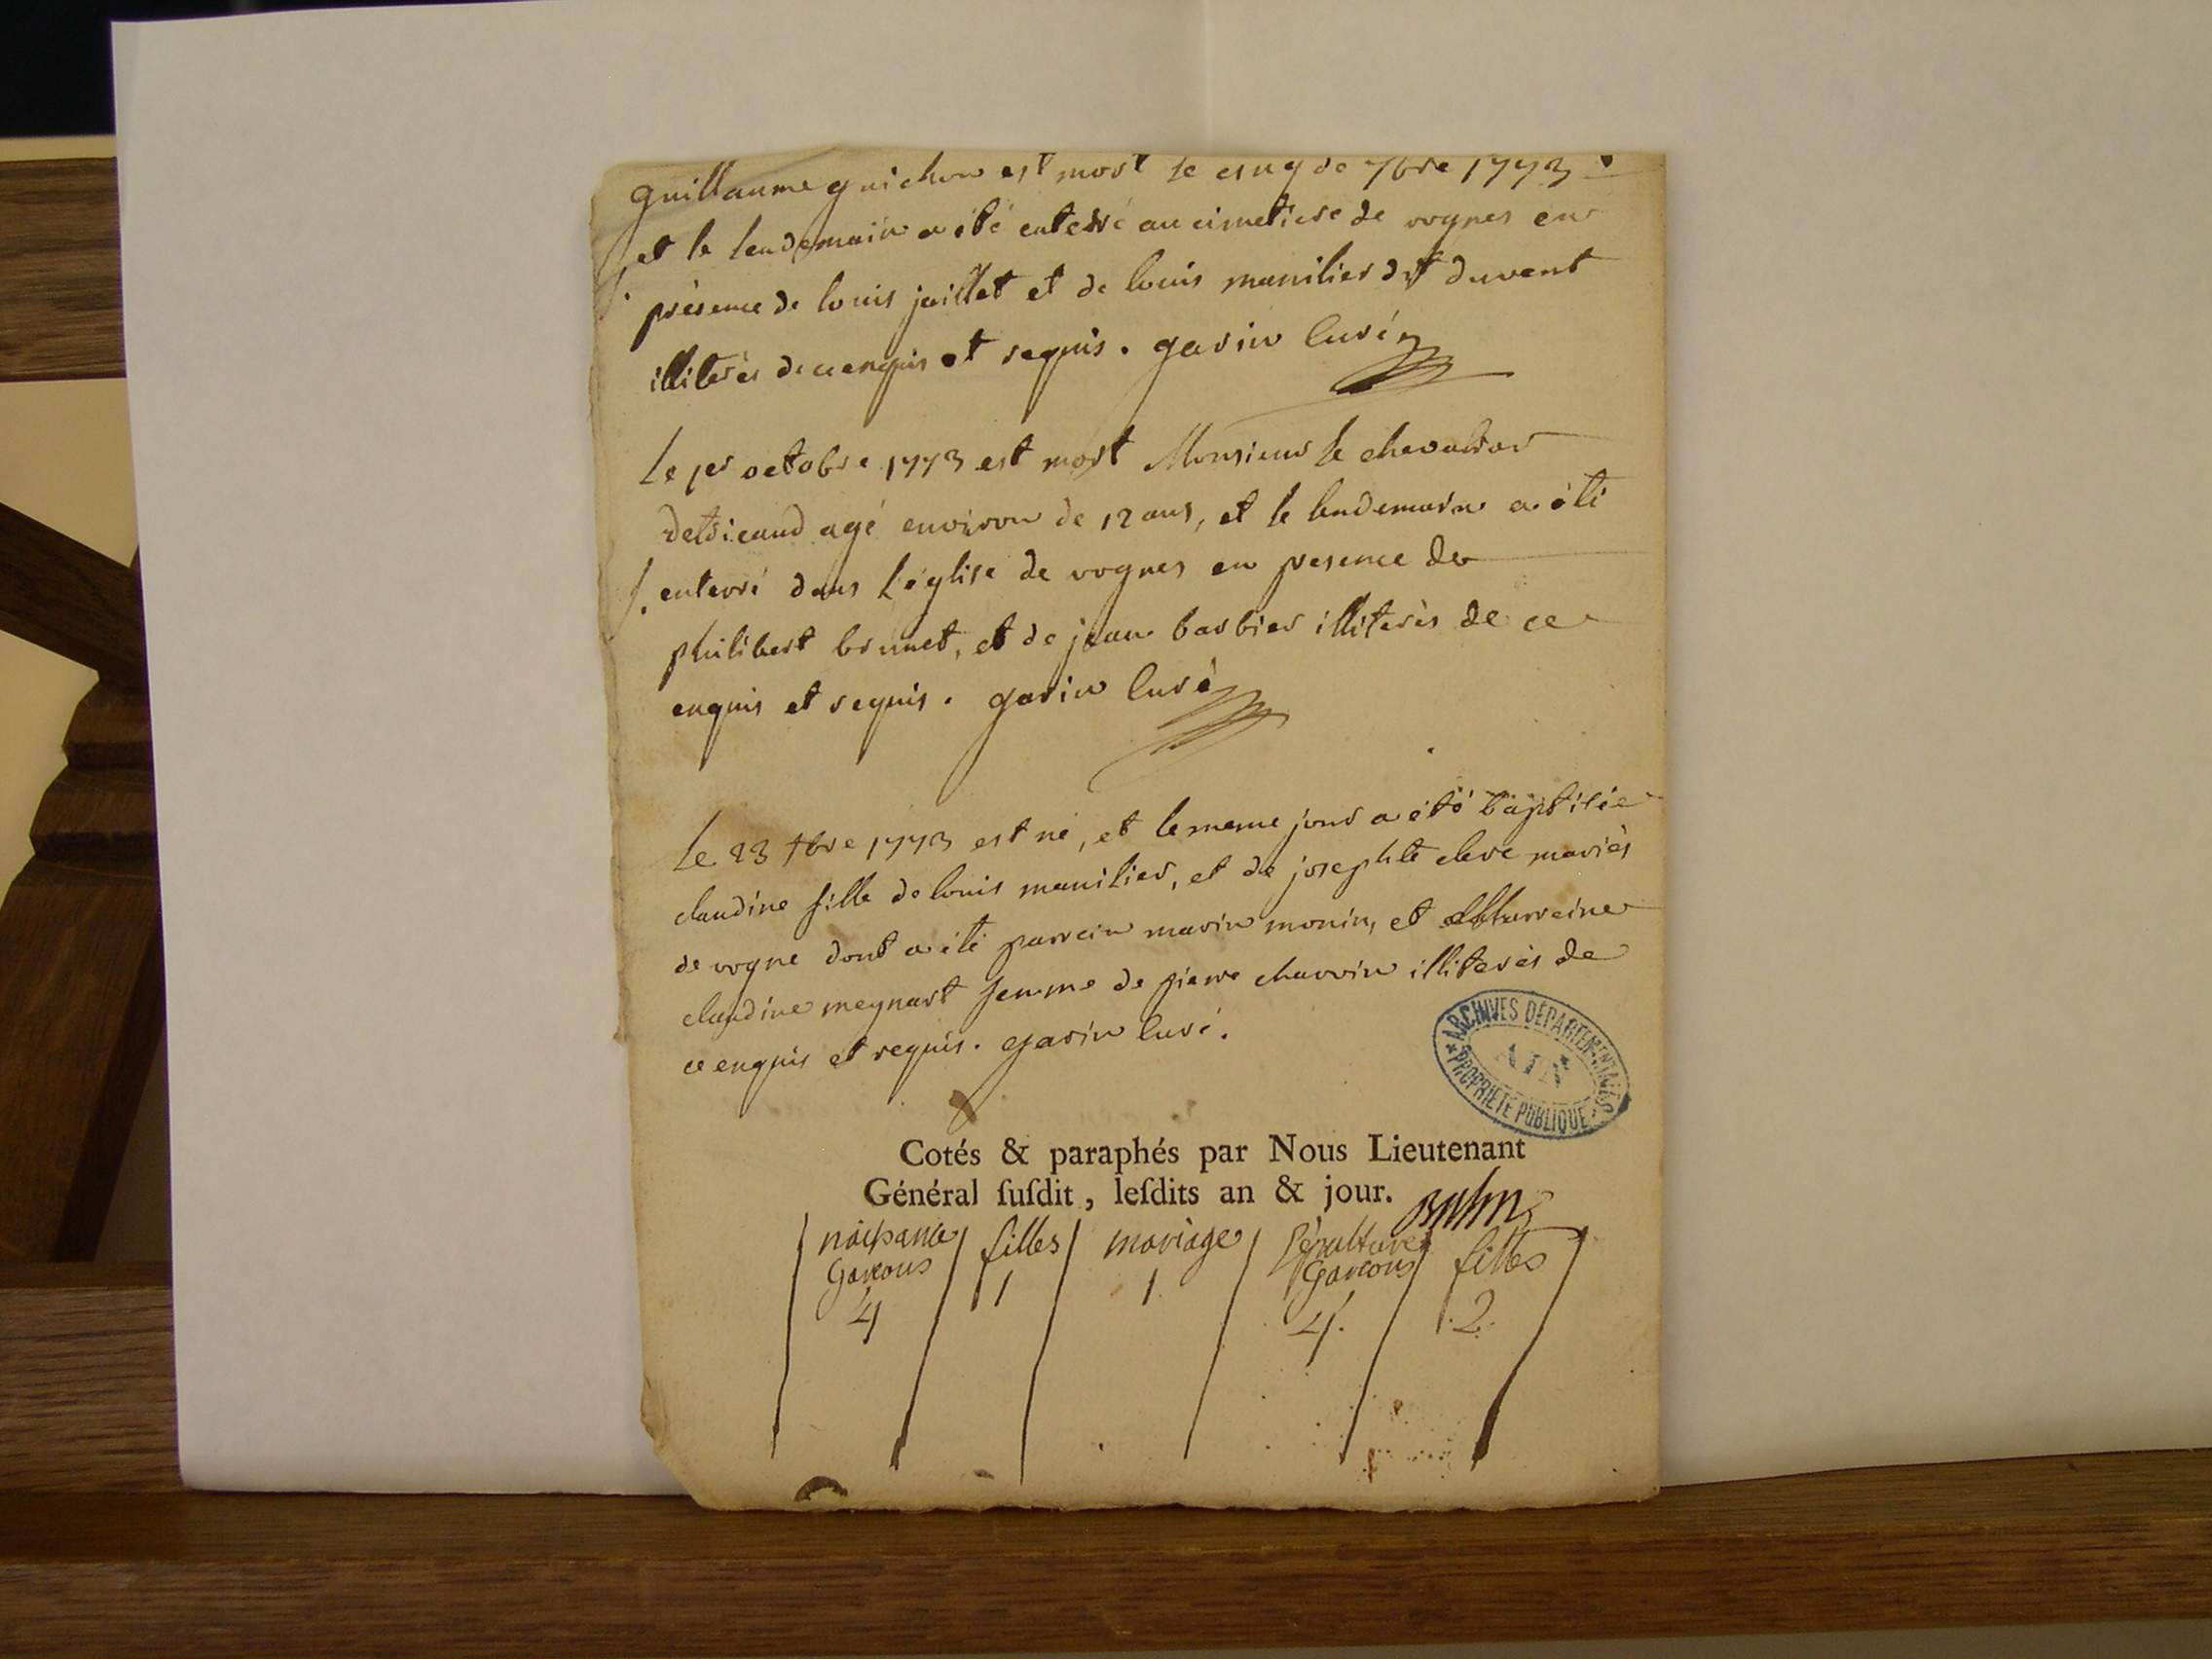 guillaume guichon est mort le cinq de 7bre 1773
et le lendemain a été enterré au cimetiere de vognes en
présence de louis jaillet et de louis manilier dit duvent
illiterés de ce enquis et requis. garin Curé
Le 1er octobre 1773 est mort Monsieur le chevalier
agé environ de 12 ans, et le lendemain a été
enterré dans l'église de vognes en presence de
philibert brunet, et de jean barbier illiterés de ce
enquis et requis. garin Curé
Le 23 1773 est né, et le meme jour a été baptisée
claudine fille de louis manilier, et de josephte clere mariés
de vogne dont a été parrein marin monin, et marreine
claudine meynart femme de pierre charvin illiterés de
ce enquis et requis. garin Curé.
ARCHIVES DÉPARTEMENTALES
AIN
PROPRIÉTÉ PUBLIQUE
Cotés & paraphés par Nous Lieutenant
Général ſuſdit, leſdits an & jour.
naissance filles mariage sépulture filles
Garcons 1 1 Garcons 2
4 4